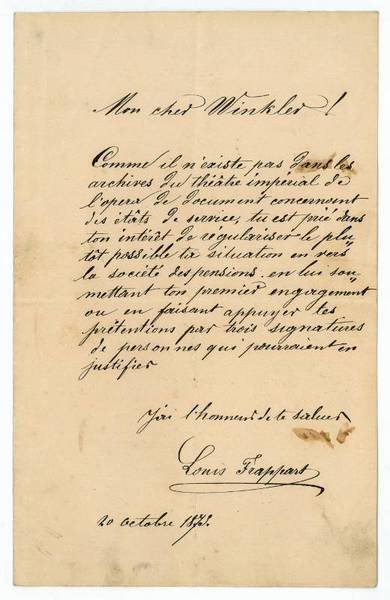 Mon cher Winkler!
Comme il n'existe pas dans les
archives du théâtre impérial de
l'opera de document concernent
dis états de service, tu est prié dans
ton intérêt de régulariser le plu„
tôt possible ta situation en vers
la société des pensions. en lui sou„
mettant ton premier engagement
ou en faisant appuyer les
prétentions par trois signatures
de personnes qui pourraient en
justifier
J'ai l'honneur de te saluer
Louis Frappart
20 octobre